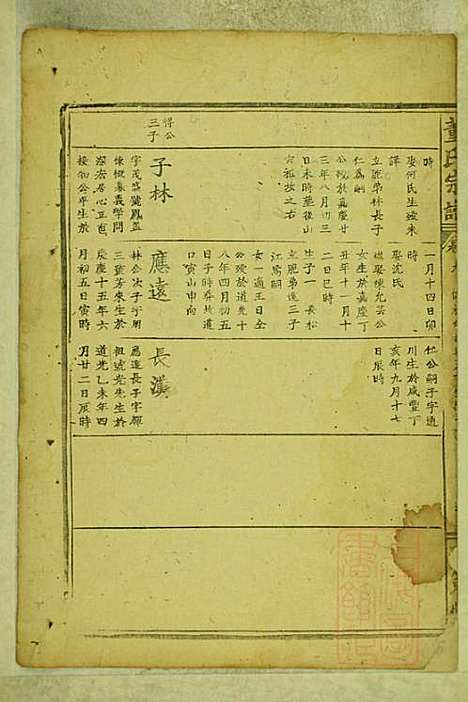 董氏宗譜
時
娶何氏生歿未
詳
立胞弟林長子
仁為嗣
公歿於嘉慶廿
三年八月初三
日未時葬後山
六祖坟之右
得公
三子
子林
字茂盛號鳳益
慷慨慕義學問
深宏居心正直
接物公平生於
一月十四日卯
時
娶沈氏
繼娶陳允芸公
女生於嘉慶丁
丑年十一月十
二日巳時
生子一　長松
立胞弟遠三子
江為嗣
女一適王日全
公歿於道光十
八年四月初五
日子時葬坟遠
口寅山申向
應遠
林公次子字用
三號芳來生於
慶十五年六
月初五日寅時
仁公嗣子字道
川生於咸豐丁
亥年九月十七
日辰時
長漢
應遠長子字輝
祖號光先生於
道光乙未年四
月廿二日辰時